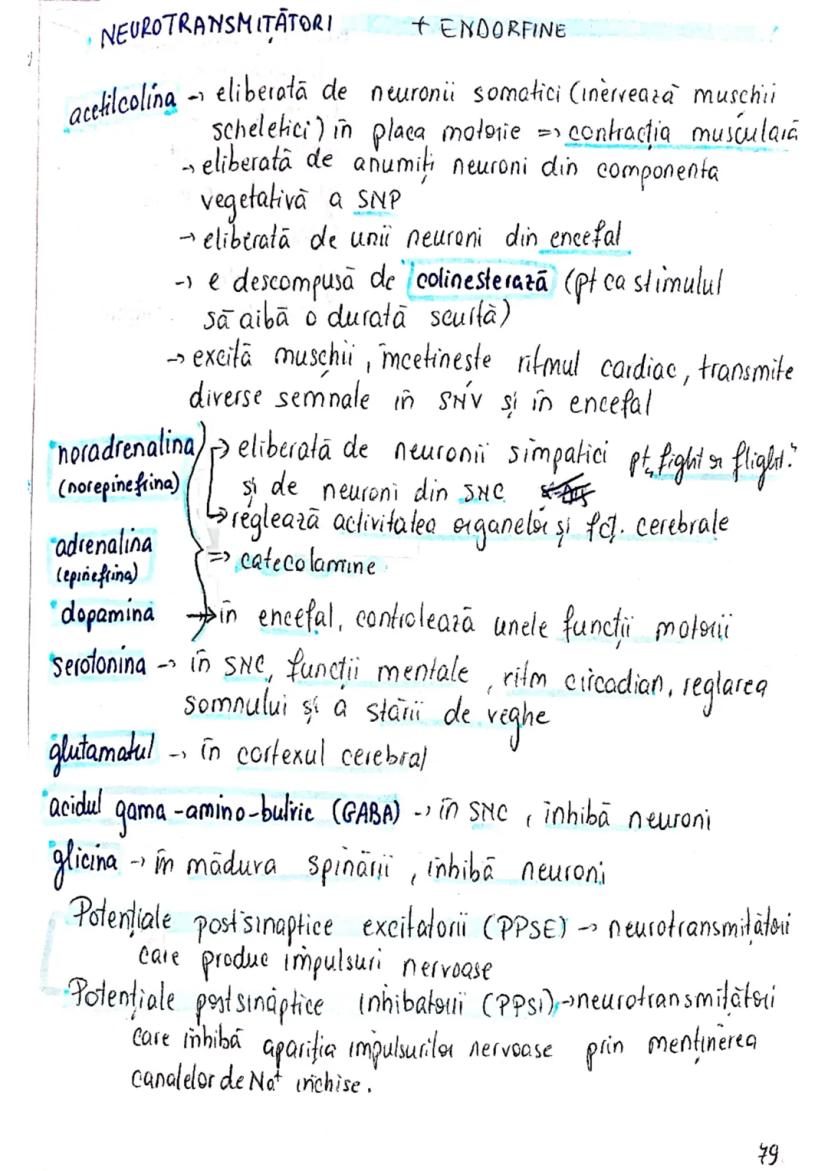 NEUROTRANSMIȚĂTORI + ENDORFINE
acetilcolina → eliberată de neuronii somatici (inervează mușchii
scheletici) în placa motorie => contracția musculară
→ eliberată de anumiți neuroni din componenta
vegetativă a SNP
→ eliberată de unii neuroni din encefal
→ e descompusă de colinesterază (pt ca stimulul
să aibă o durată scurtă)
→ excită mușchii, încetinește ritmul cardiac, transmite
diverse semnale în SNV și în encefal
noradrenalina → eliberată de neuronii simpatici pt „fight or flight"
(norepinefrina) și de neuroni din SNC
→ reglează activitatea organelor și fcț. cerebrale
adrenalina
(epinefrina)
=> catecolamine
dopamina → în encefal, controlează unele funcții motorii
serotonina → în SNC, funcții mentale, ritm circadian, reglarea
somnului și a stării de veghe
glutamatul → în cortexul cerebral
acidul gama-amino-butiric (GABA) → în SNC, inhibă neuroni
glicina → în mădura spinării, inhibă neuroni
Potențiale postsinaptice excitatorii (PPSE) → neurotransmițători
care produc impulsuri nervoase
Potențiale postsinaptice inhibatorii (PPSi) → neurotransmițători
care inhibă apariția impulsurilor nervoase prin menținerea
canalelor de Na⁺ închise.
79